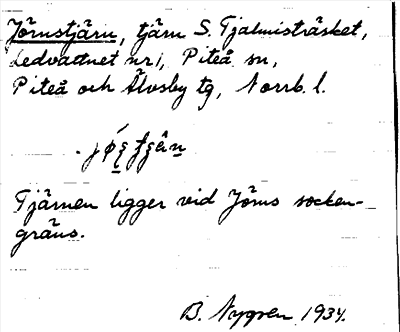 Jörnstjärn, tjärn S. Tjalmisträsket,
Ledvattnet nr 1, Piteå sn,
Piteå och Älvsby tg, Norrb. l.
Tjärnen ligger vid Jörns socken-
gräns.
B. Nygren 1934.